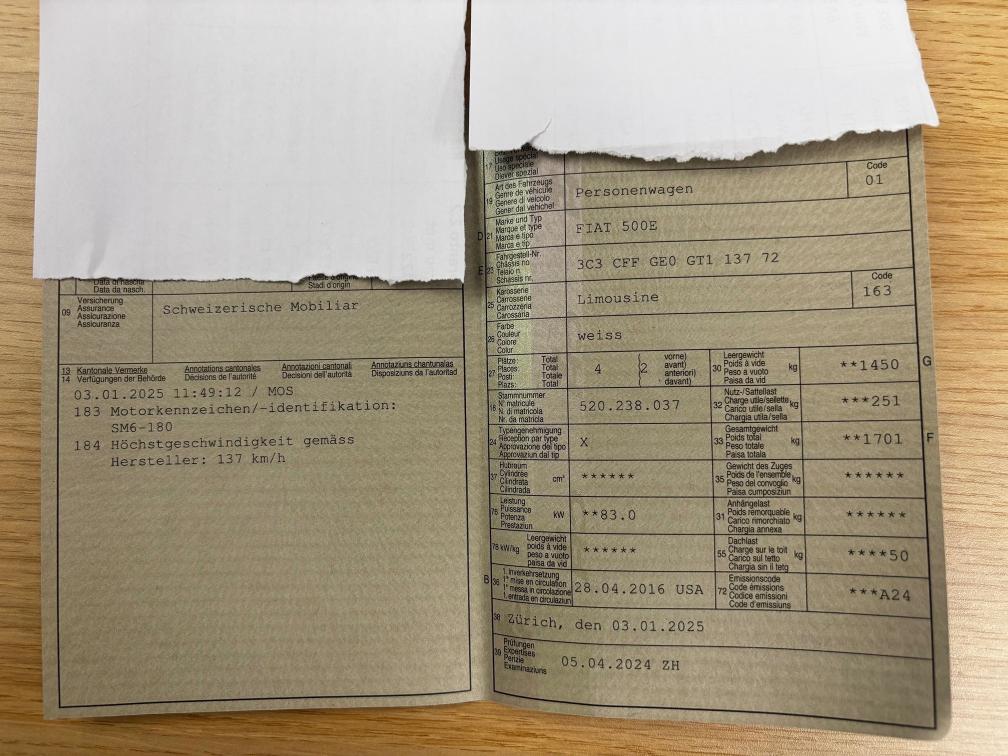 Data da nasch.
Stadi d'origin
09 Versicherung
Assurance
Assicurazione
Assicuranza
Schweizerische Mobiliar
13 Kantonale Vermerke Annotations cantonales Annotazioni cantonali Annotaziuns chantunalas
14 Verfügungen der Behörde Décisions de l'autorité Decisioni dell'autorità Disposiziuns da l'autoritad
03.01.2025 11:49:12 / MOS
183 Motorkennzeichen/-identifikation:
SM6-180
184 Höchstgeschwindigkeit gemäss
Hersteller: 137 km/h
17
Usage spécial
Uso speciale
Diever spezial
19 Art des Fahrzeugs
Genre de véhicule
Genere di veicolo
Gener dal vehichel
Personenwagen
Code
01
D 21 Marke und Typ
Marque et type
Marca e tipo
Marca e tip
FIAT 500E
E 23 Fahrgestell-Nr.
Châssis no
Telaio n.
Schassis nr.
3C3 CFF GE0 GT1 137 72
25 Karosserie
Carrosserie
Carrozzeria
Carossaria
Limousine
Code
163
26 Farbe
Couleur
Colore
Colur
weiss
27 Plätze: Total
Places: Total
Posti: Totale
Plazs: Total
4 (2 vorne)
avant)
anteriori)
davant)
30 Leergewicht
Poids à vide
Peso a vuoto
Paisa da vid
kg
**1450
G
18 Stammnummer
N° matricule
N. di matricola
Nr. da matricla
520.238.037
32 Nutz-/Sattellast
Charge utile/sellette
Carico utile/sella
Chargia utila/sella
kg
***251
24 Typengenehmigung
Réception par type
Approvazione del tipo
Approvaziun dal tip
X
33 Gesamtgewicht
Poids total
Peso totale
Paisa totala
kg
**1701
F
37 Hubraum
Cylindrée
Cilindrata
Cilindrada
cm³
******
35 Gewicht des Zuges
Poids de l'ensemble
Peso del convoglio
Paisa cumposiziun
kg
******
76 Leistung
Puissance
Potenza
Prestaziun
kW
**83.0
31 Anhängelast
Poids remorquable
Carico rimorchiato
Chargia annexa
kg
******
78 kW/kg Leergewicht
poids à vide
peso a vuoto
paisa da vid
******
55 Dachlast
Charge sur le toit
Carico sul tetto
Chargia sin il tetg
kg
****50
B 36 1. Inverkehrsetzung
1re mise en circulation
1a messa in circolazione
1. entrada en circulaziun
28.04.2016 USA
72 Emissionscode
Code émissions
Codice emissioni
Code d'emissiuns
***A24
38 Zürich, den 03.01.2025
39 Prüfungen
Expertises
Perizie
Examinaziuns
05.04.2024 ZH